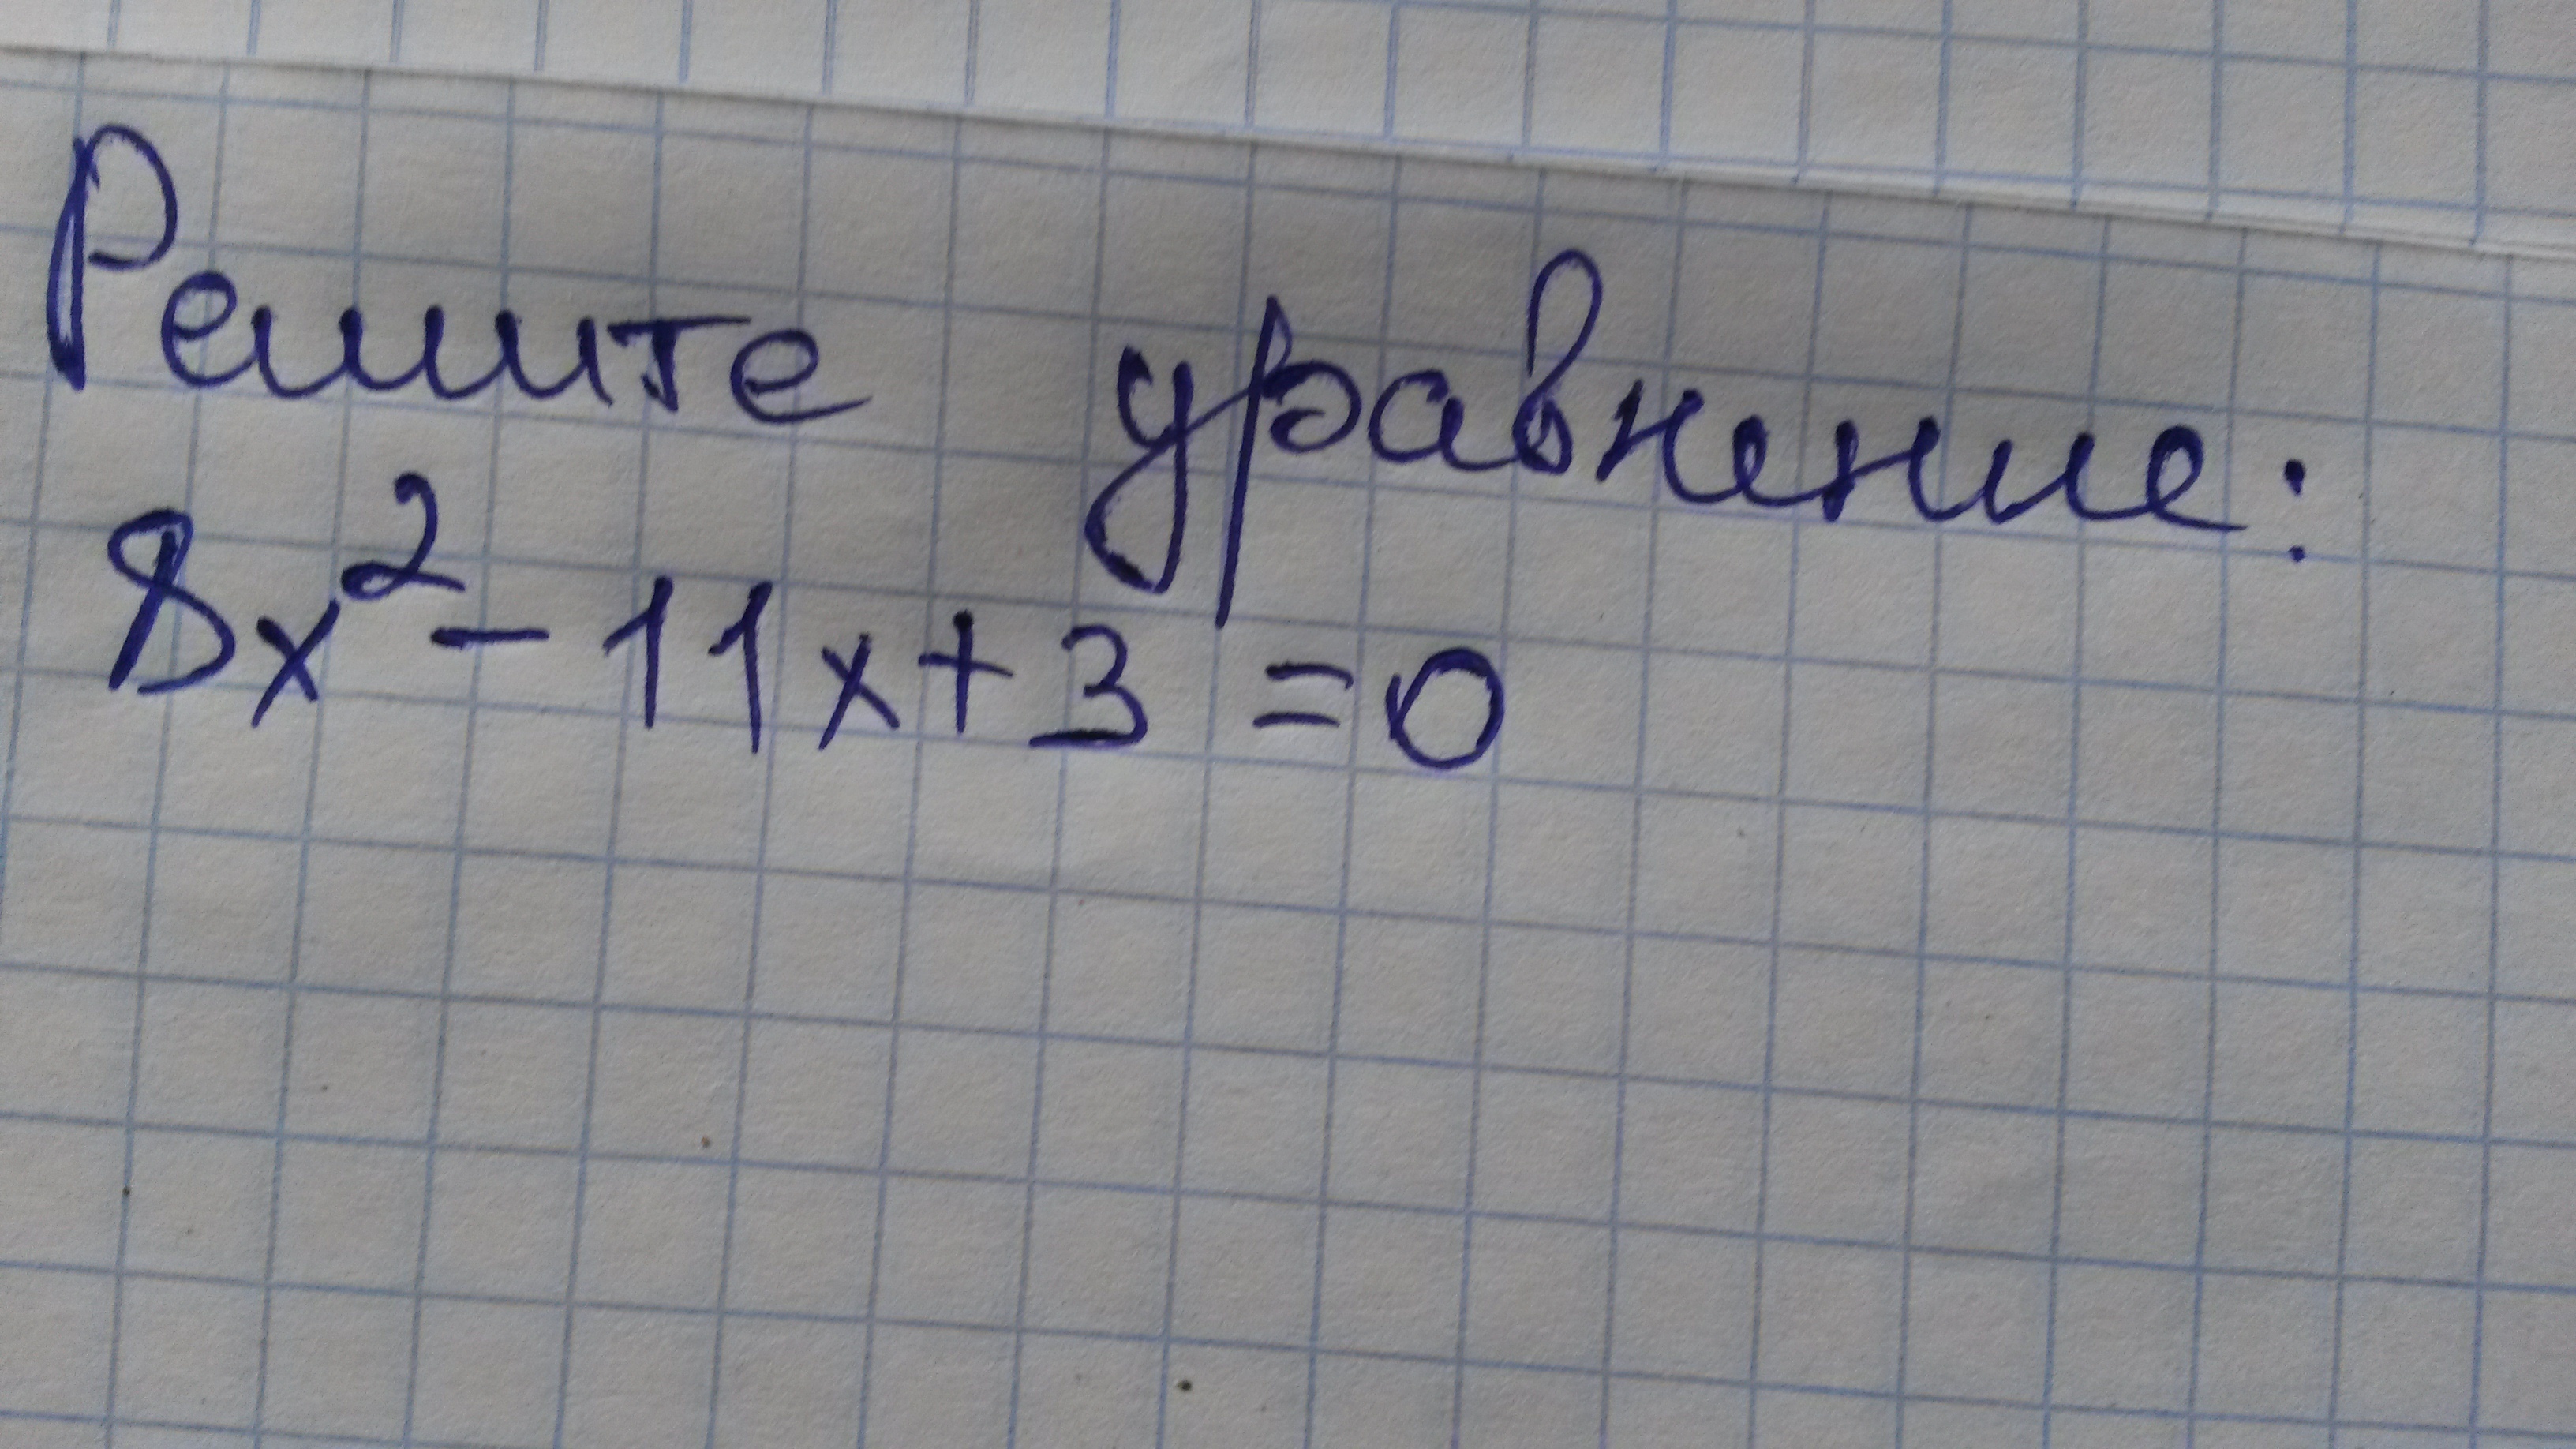 Решите уравнение:
8x² - 11x + 3 = 0